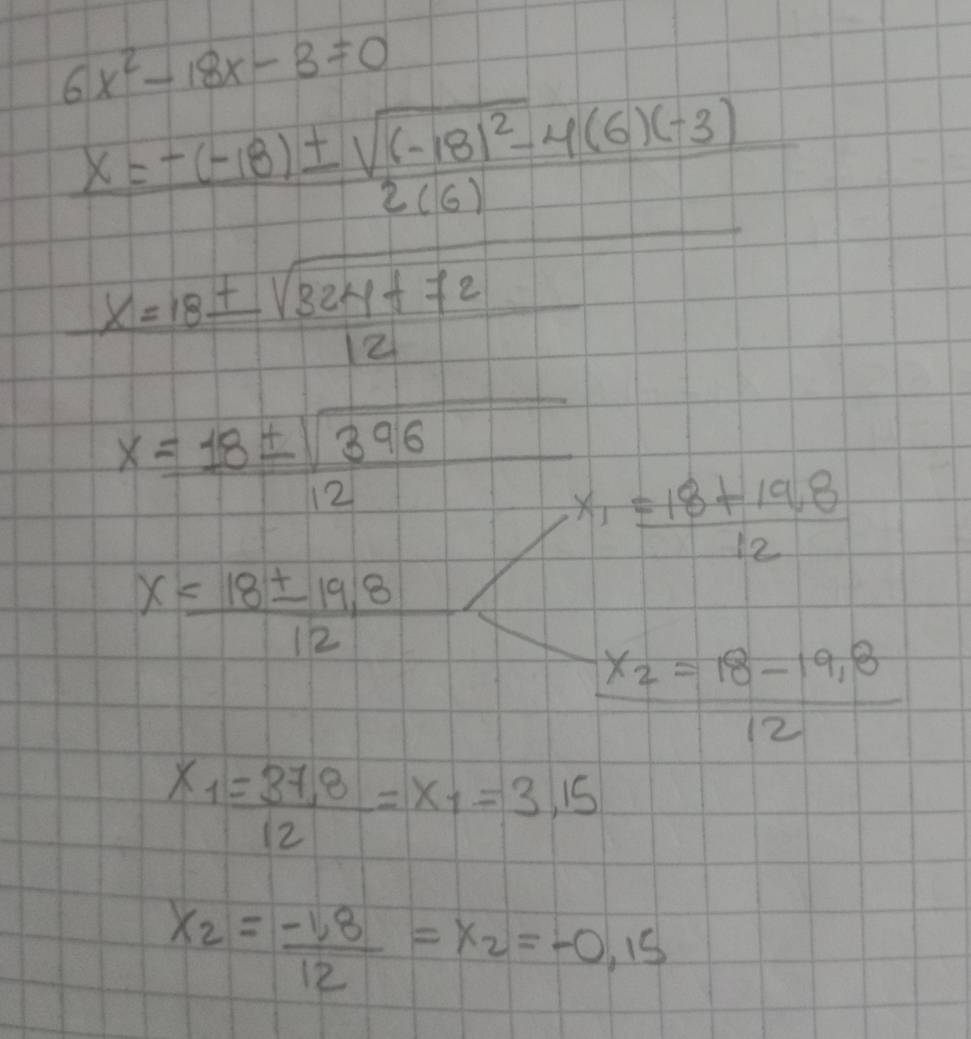 6x² - 18x - 3 = 0
x = -(-18) ± √(-18)² - 4(6)(-3)
2(6)
x = 18 ± √324 + 72
12
x = 18 ± √396
12
x₁ = 18 + 19,8
12
x = 18 ± 19,8
12
x₂ = 18 - 19,8
12
x₁ = 37,8 = x₁ = 3,15
12
x₂ = -1,8 = x₂ = -0,15
12